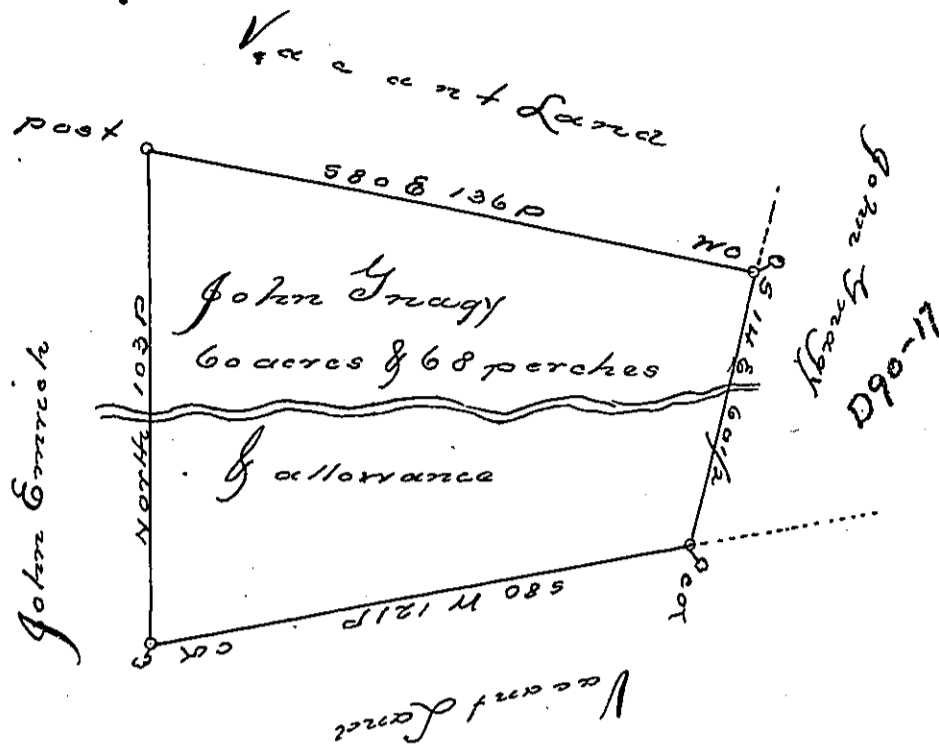 Vacant Land
post
S80E 136P
WO
John Gnagy
D90-17
S14E 60 1/2
John Gnagy
60 acres & 68 perches
& allowance
North 103P
John Emerick
S80W 121P
Vacant Land